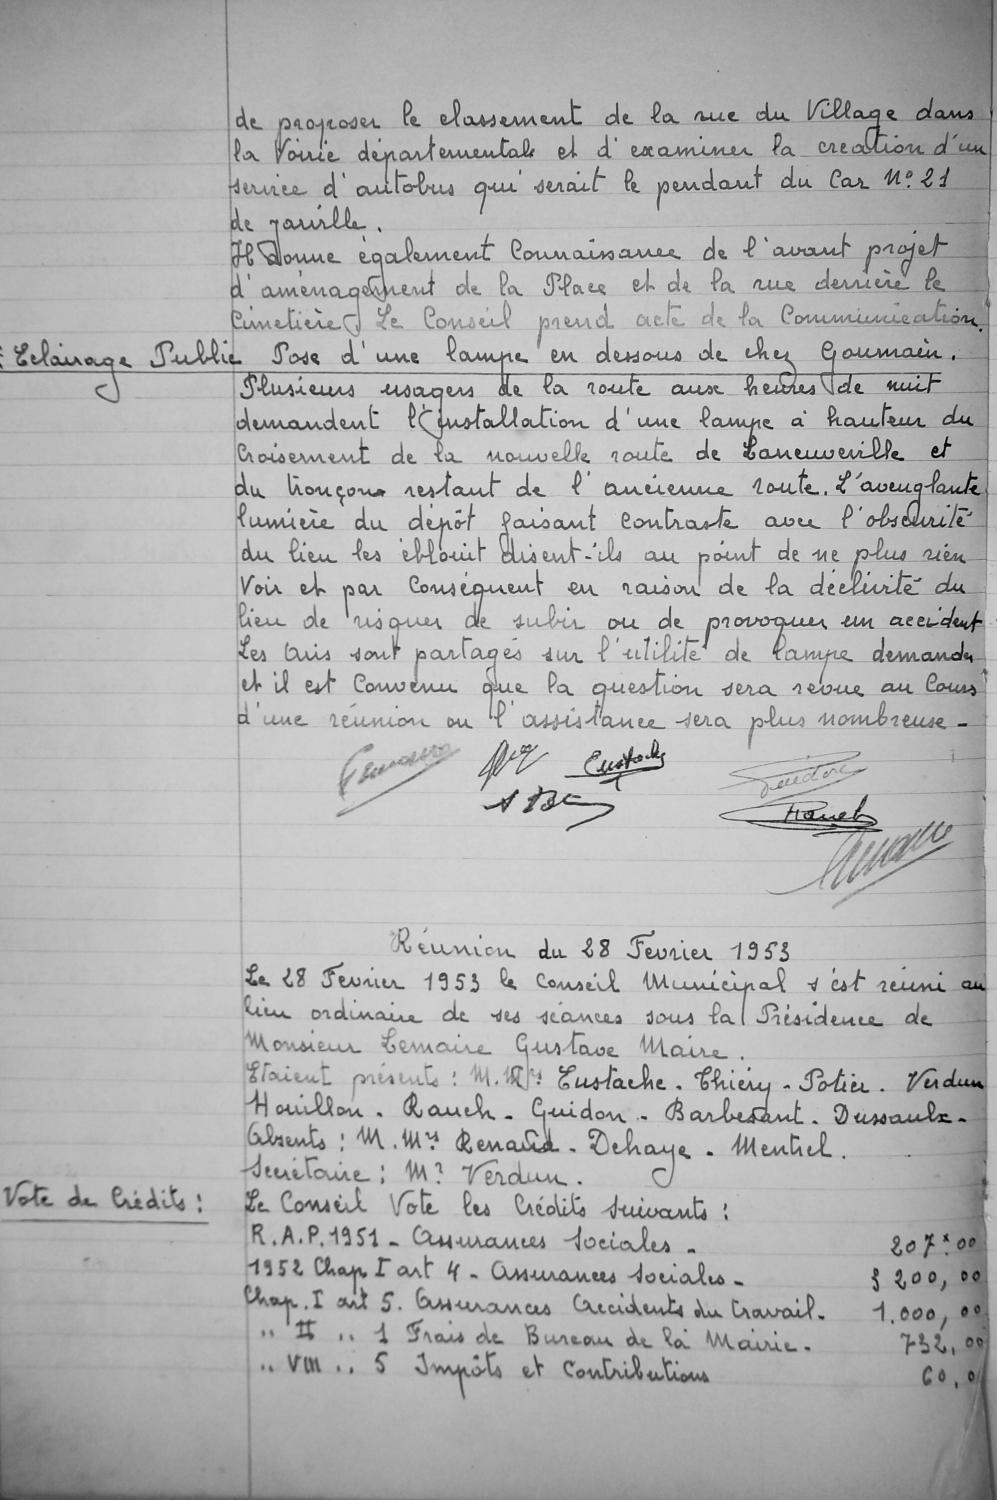 de proposer le classement de la rue du Village dans
la Voirie départementale et d'examiner la creation d'un
service d'autobus qui serait le pendant du Car N° 21
de Jarville.
Il Donne également Connaissance de l'avant projet
d'aménagement de la Place et de la rue derrière le
Cimetière. Le Conseil prend acte de la Communication.
Eclairage Public Pose d'une lampe en dessous de chez Goumain.
Plusieurs usagers de la route aux heures de nuit
demandent l'installation d'une lampe à hauteur du
Croisement de la nouvelle route de Laneuveville et
du tronçon restant de l'ancienne route. L'aveuglante
lumière du dépôt faisant contraste avec l'obscurité
du lieu les éblouit disent-ils au point de ne plus rien
Voir et par Conséquent en raison de la déclivité du
lieu de risquer de subir ou de provoquer un accident
Les Avis sont partagés sur l'utilité de lampe demandée
et il est Convenu que la question sera revue au Cours
d'une réunion ou l'assistance sera plus nombreuse -
Eustache
Guidon
Rauch
Réunion du 28 Fevrier 1953
Le 28 Fevrier 1953 le Conseil Municipal s'est réuni au
lieu ordinaire de ses séances sous la Présidence de
Monsieur Lemaire Gustave Maire.
Etaient présents : M.Mrs Eustache - Thiéry - Potier. Verdun
Houillon - Rauch - Guidon - Barbesant - Dussaulx -
Absents : M.Mrs Renauld - Dehaye - Mentrel.
Secrétaire : Mr Verdun.
Vote de Crédits : Le Conseil Vote les Crédits Suivants :
R.A.P. 1951 - Assurances Sociales - 207 00
1952 Chap I art 4 - Assurances Sociales - 3 200,00
Chap. I art 5. Assurances Accidents du travail - 1.000,00
" II " 1 Frais de Bureau de la Mairie - 732,00
" VIII " 5 Impôts et Contributions 60,0